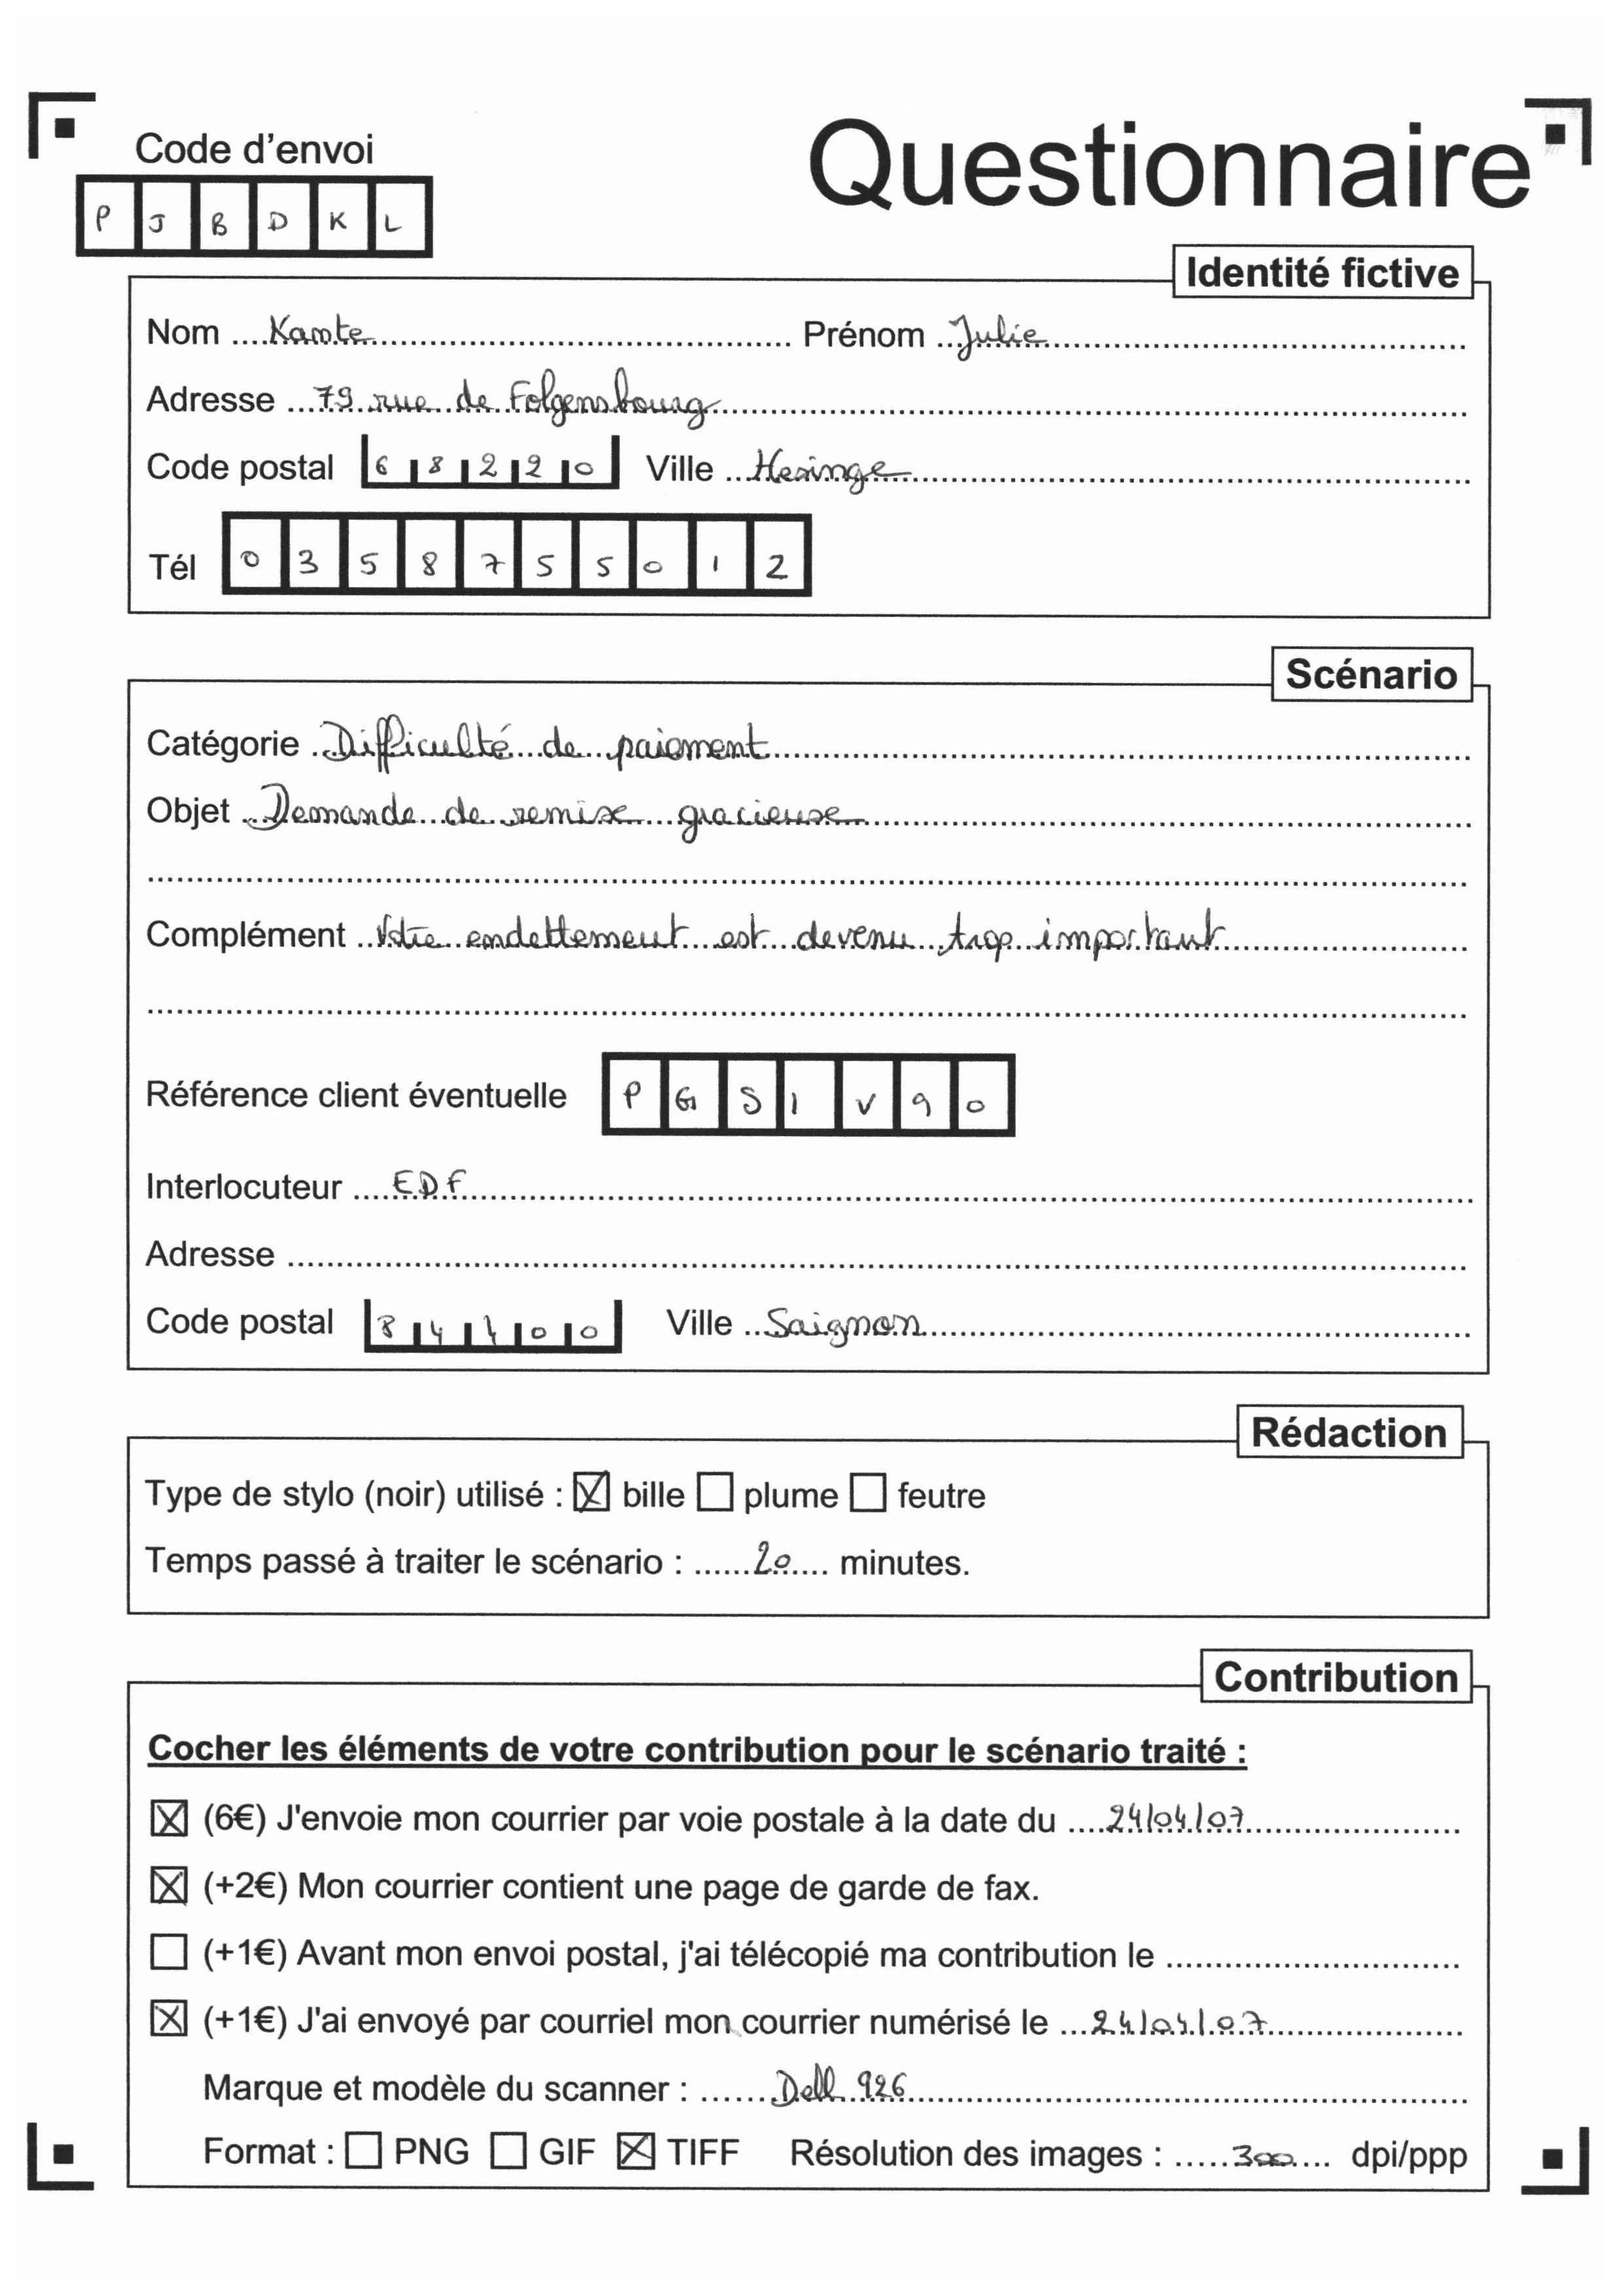 Code d'envoi
Questionnaire
P J B D K L
Identité fictive
Nom Kamte Prénom Julie
Adresse 79 rue de Folgensbourg
Code postal 68220 Ville Hesinge
Tél 0358755012
Scénario
Catégorie Difficulté de paiement
Objet Demande de remise gracieuse
Complément Votre endettement est devenu trop important
Référence client éventuelle PGSIV90
Interlocuteur EDF
Adresse
Code postal 84400 Ville Saignon
Rédaction
Type de stylo (noir) utilisé : ☒ bille ☐ plume ☐ feutre
Temps passé à traiter le scénario : 20 minutes.
Contribution
Cocher les éléments de votre contribution pour le scénario traité :
☒ (6€) J'envoie mon courrier par voie postale à la date du 24/04/07
☒ (+2€) Mon courrier contient une page de garde de fax.
☐ (+1€) Avant mon envoi postal, j'ai télécopié ma contribution le
☒ (+1€) J'ai envoyé par courriel mon courrier numérisé le 24/04/07
Marque et modèle du scanner : Dell 926
Format : ☐ PNG ☐ GIF ☒ TIFF Résolution des images : 300 dpi/ppp